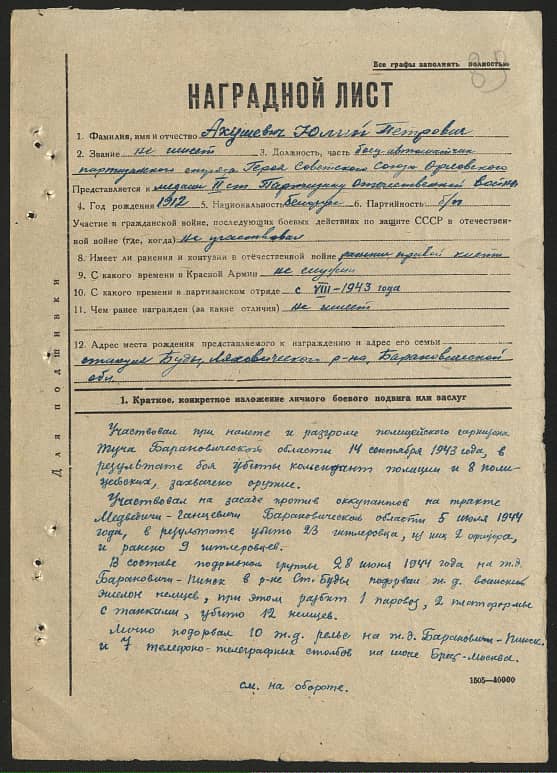 Все графы заполнять полностью
НАГРАДНОЙ ЛИСТ
1. Фамилия, имя и отчество Ахушевич Юлий Петрович
2. Звание не имеет 3. Должность, часть боец-автоматчик
партизанского отряда Героя Советского Союза
Представляется к медали II ст. Партизану Отечественной Войны
4. Год рождения 1912 5. Национальность белорус 6. Партийность б/п
Участие в гражданской войне, последующих боевых действиях по защите СССР в отечествен-
ной войне (где, когда) не участвовал
8. Имеет ли ранения и контузии в отечественной войне ранения кисти
9. С какого времени в Красной Армии не служил
10. С какого времени в партизанском отряде с VIII-1943 года
11. Чем ранее награжден (за какие отличия) не имеет
12. Адрес места рождения представляемого к награждению и адрес его семьи
станция Буды, Ляховичского р-на, Барановичской
обл.
Для подшивки
1. Краткое, конкретное изложение личного боевого подвига или заслуг
Участвовал при налете и разгроме полицейского гарнизона
Туча Барановической области 14 сентября 1943 года, в
результате боя убиты комендант полиции и 8 поли-
цейских, захвачено оружие.
Участвовал на засаде против оккупантов на тракте
Медведичи-Ганцевичи Барановической области 5 июля 1944
года, в результате убито 23 гитлеровца, из них 2 офицера,
и ранено 9 гитлеровцев.
В составе подрывной группы 28 июня 1944 года на ж.д.
Барановичи-Пинск в р-не Ст. Буды подорвал ж.д. воинский
эшелон немцев, при этом разбит 1 паровоз, 2 платформы
с танками, убито 12 немцев.
Лично подорвал 10 ж.д. рельс на ж.д. Барановичи-Пинск.
и 7 телефоно-телеграфных столбов на шосе Брест-Москва.
см. на обороте.
1505—40000